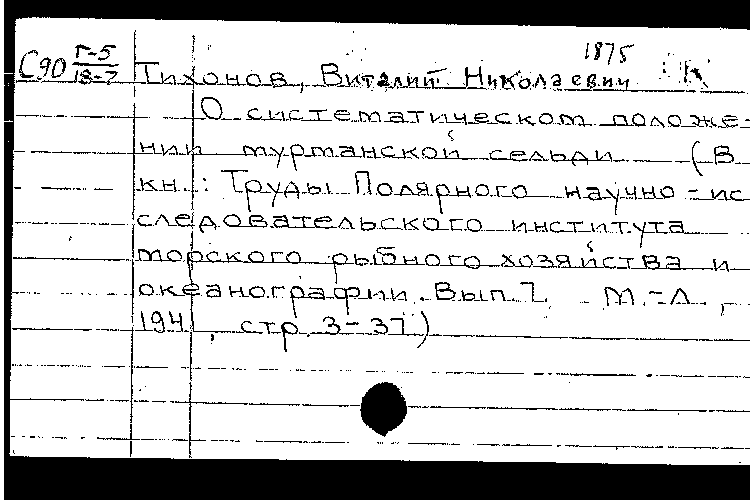 1875
С90 Г-5/18-7 Тихонов, Виталий Николаевич
О систематическом положе-
нии мурманской сельди (В
кн.: Труды Полярного научно-ис
следовательского института
морского рыбного хозяйства и
океанографии. Вып. 7. М.-Л.,
1941, стр. 3-37)